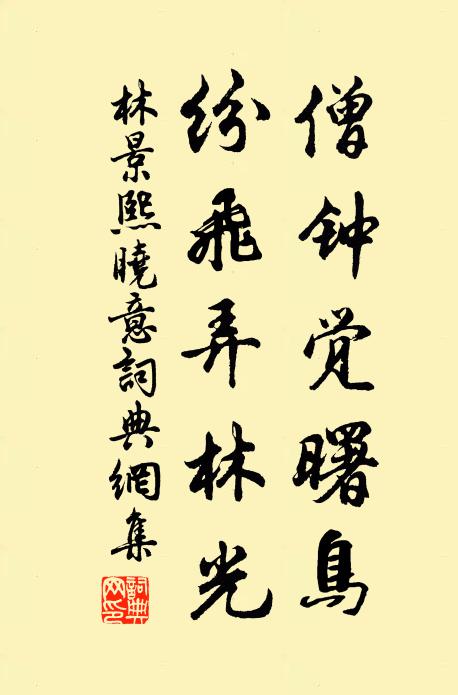 僧钟觉曙鳥
纷飛弄林光
林景熙曉意詞典網集
詞典网印